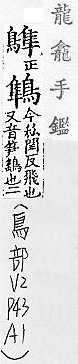 龍龕手鑑
正
今私閏反飛也
又音笋也二
(鳥部V2 P43 A1)